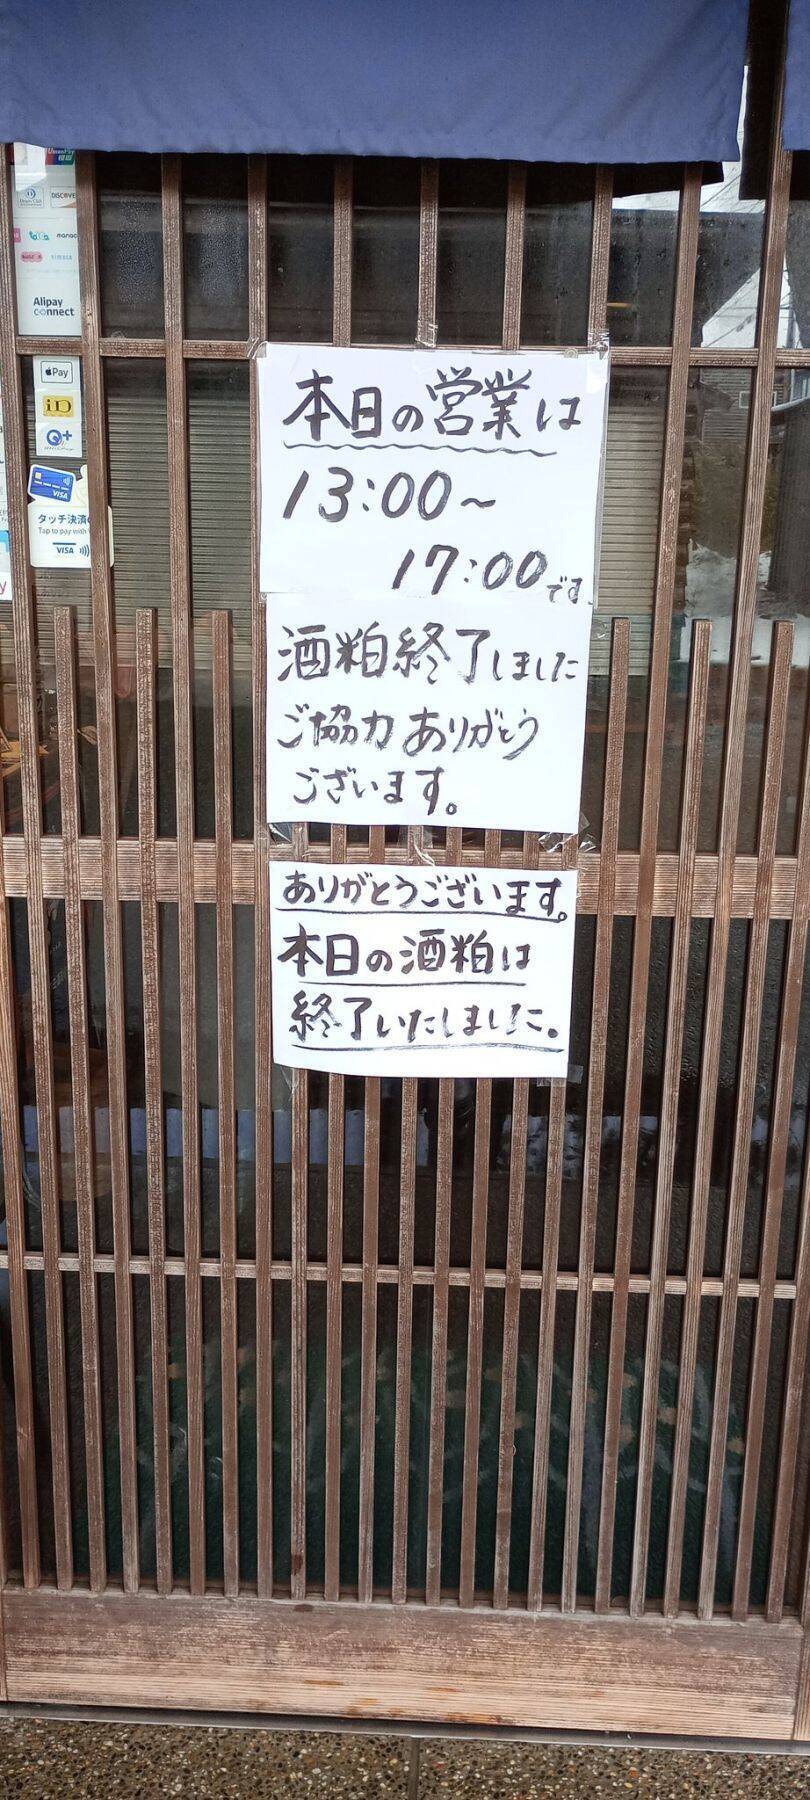 UnionPay
DISCOVE
manac
Alipay
connect
Pay
iD
Q+
VISA
タッチ決済
Tap to pay with
VISA
本日の営業は
13:00~
17:00です。
酒粕終了しました
ご協力ありがとう
ございます。
ありがとうございます。
本日の酒粕は
終了いたしました。